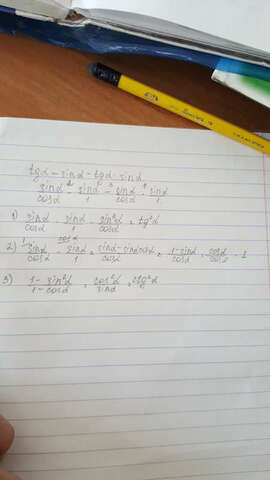 tgα - sinα - tgα · sinα
sinα/cosα - sinα/1 - sinα/cosα · sinα/1
1) sinα/cosα · sinα/1 = sin²α/cosα = tg²α
2) sinα/cosα - sinα/1 = sinα - sinαcosα/cosα = 1-sinα/cosα = cosα/cosα = 1
3) 1 - sin²α/1 - cosα = cos²α/sinα = ctg²α